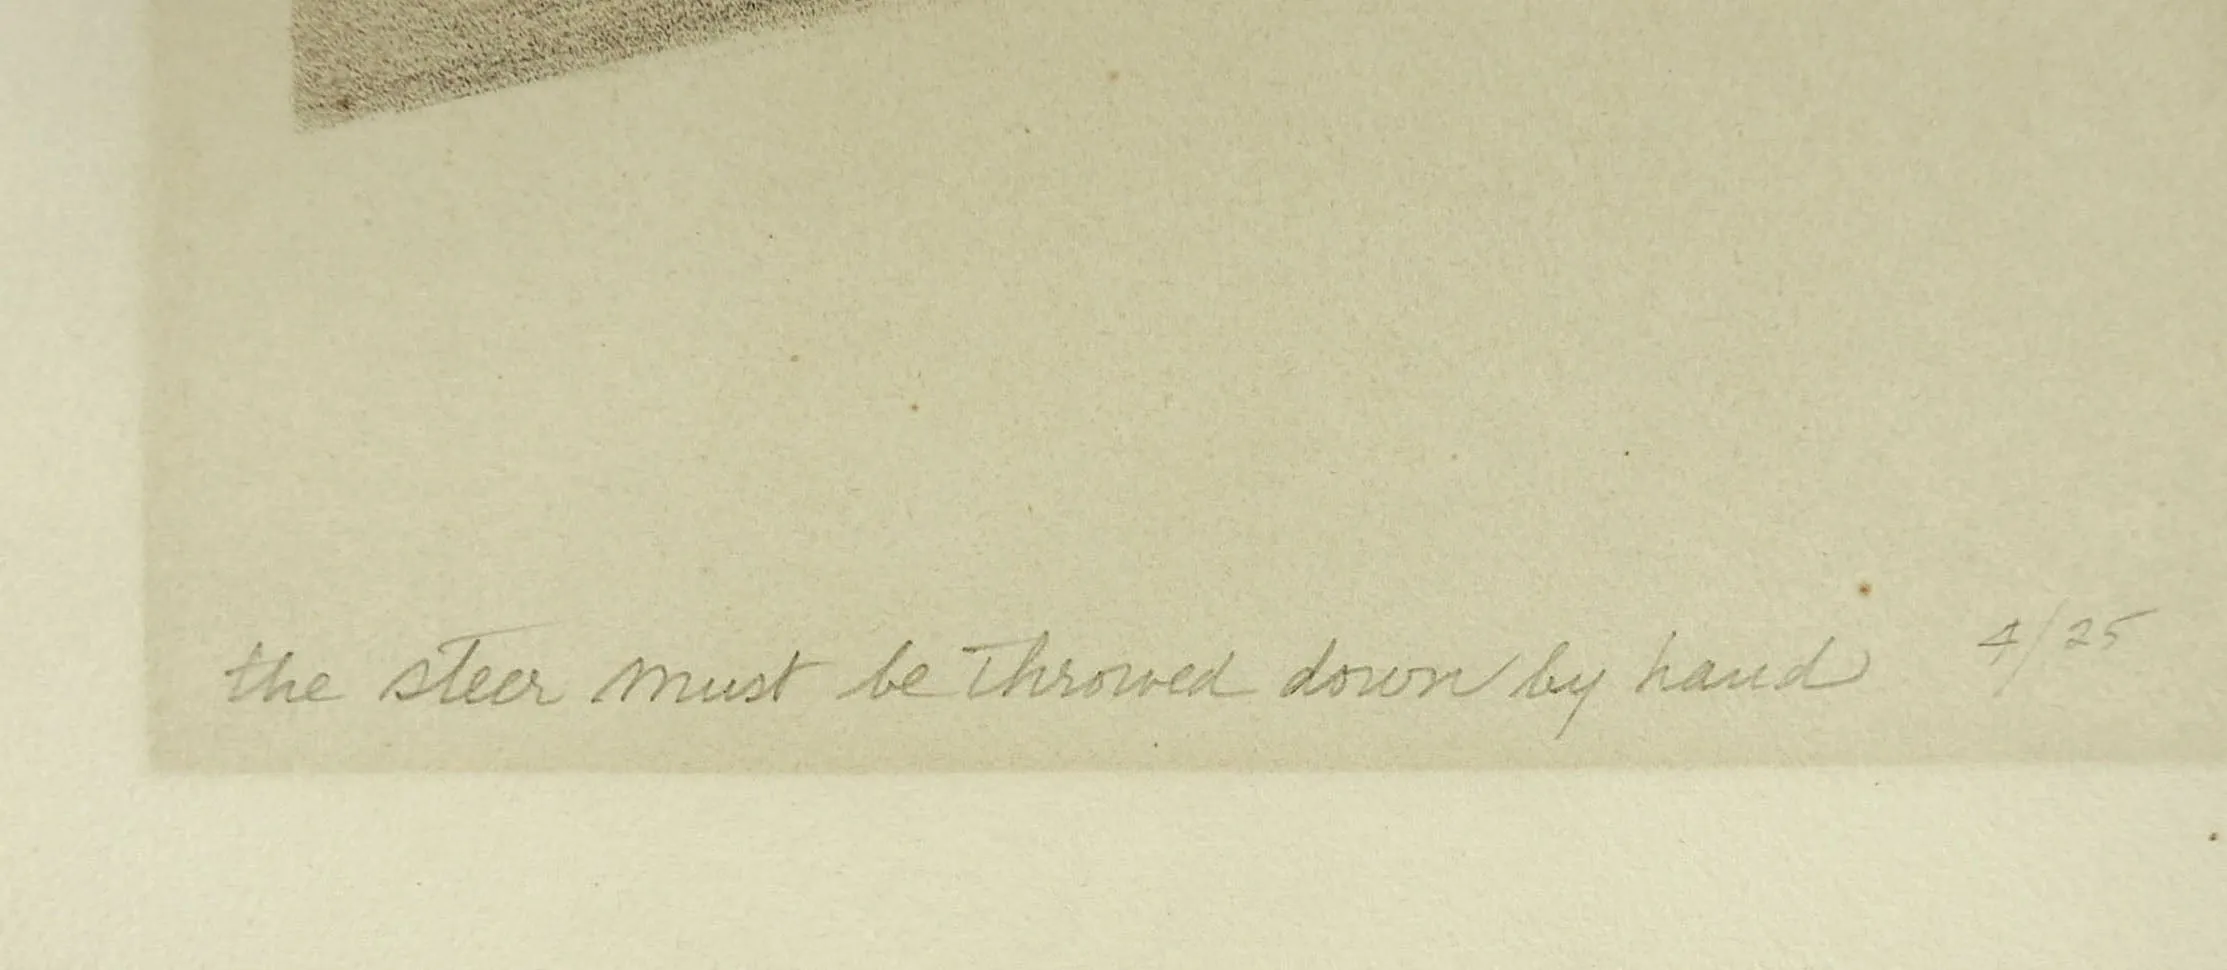 the steer must be Throwed down by hand 4/25